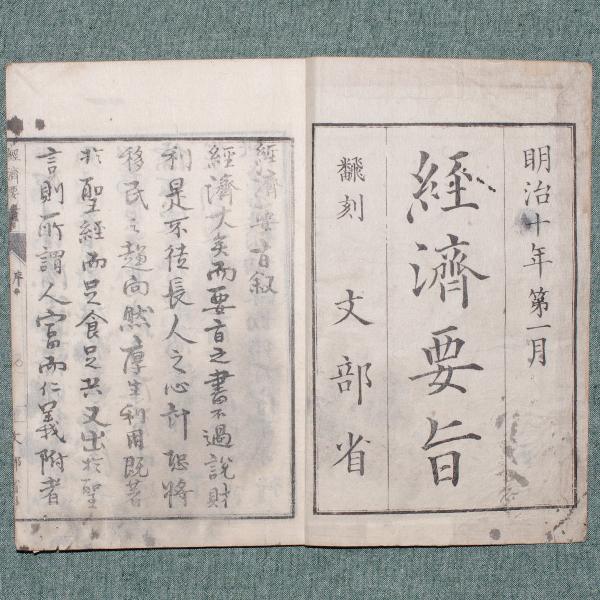 明治十年第一月
經濟要旨
飜刻 文部省
經濟要旨叙
經濟大矣而要旨之書不過說財
利是不徒長人之心計恐將
移民之趨向然厚生利用既著
於聖經而足食足兵又出於聖
言則所謂人富而仁義附者
經濟要旨
序
文部省